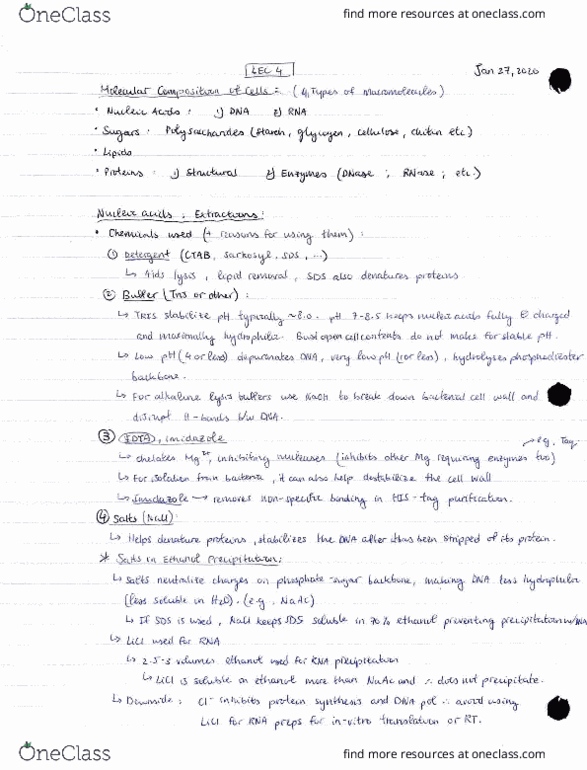 OneClass
find more resources at oneclass.com
LEC 4
Jan 27, 2020
Molecular Composition of Cells : (4 Types of macromolecules)
• Nucleic Acids : 1) DNA 2) RNA
• Sugars : Polysaccharides (starch, glycogen, cellulose, chitin etc)
• Lipids
• Proteins : 1) Structural 2) Enzymes (DNase ; RNase ; etc.)
Nucleic acids : Extractions :
• Chemicals used (+ reasons for using them) :
① Detergent (CTAB, sarkosyl, SDS, ...)
↳ Aids lysis, lipid removal, SDS also denatures proteins.
② Buffer (Tris or other) :
↳ TRIS stabilize pH typically ~8.0. pH 7-8.5 keeps nucleic acids fully ⊖ charged
and maximally hydrophilic. Bust open cell contents do not make for stable pH.
↳ Low pH (4 or less) depurinates DNA, very low pH (1 or less), hydrolyses phosphodiester
backbone.
↳ For alkaline lysis buffers use NaOH to break down bacterial cell wall and
disrupt H-bonds b/w DNA.
③ EDTA, imidazole
e.g. Taq
↳ chelates Mg²⁺, inhibiting nucleases (inhibits other Mg requiring enzymes too)
↳ For isolation from bacteria, it can also help destabilize the cell wall
↳ Imidazole → removes non-specific binding in HIS-tag purification.
④ Salts (NaCl)
↳ Helps denature proteins, stabilizes the DNA after it has been stripped of its protein.
* Salts in Ethanol Precipitation :
↳ Salts neutralize charges on phosphate-sugar backbone, making DNA less hydrophilic
(less soluble in H₂O). (e.g. NaAc)
↳ If SDS is used, NaCl keeps SDS soluble in 70% ethanol preventing precipitation w/
↳ LiCl used for RNA
↳ 2.5-3 volumes ethanol used for RNA precipitation
↳ LiCl is soluble in ethanol more than NaAc and ∴ does not precipitate.
↳ Downside : Cl⁻ inhibits protein synthesis and DNA pol ∴ avoid using
LiCl for RNA preps for in-vitro translation or RT.
OneClass
find more resources at oneclass.com